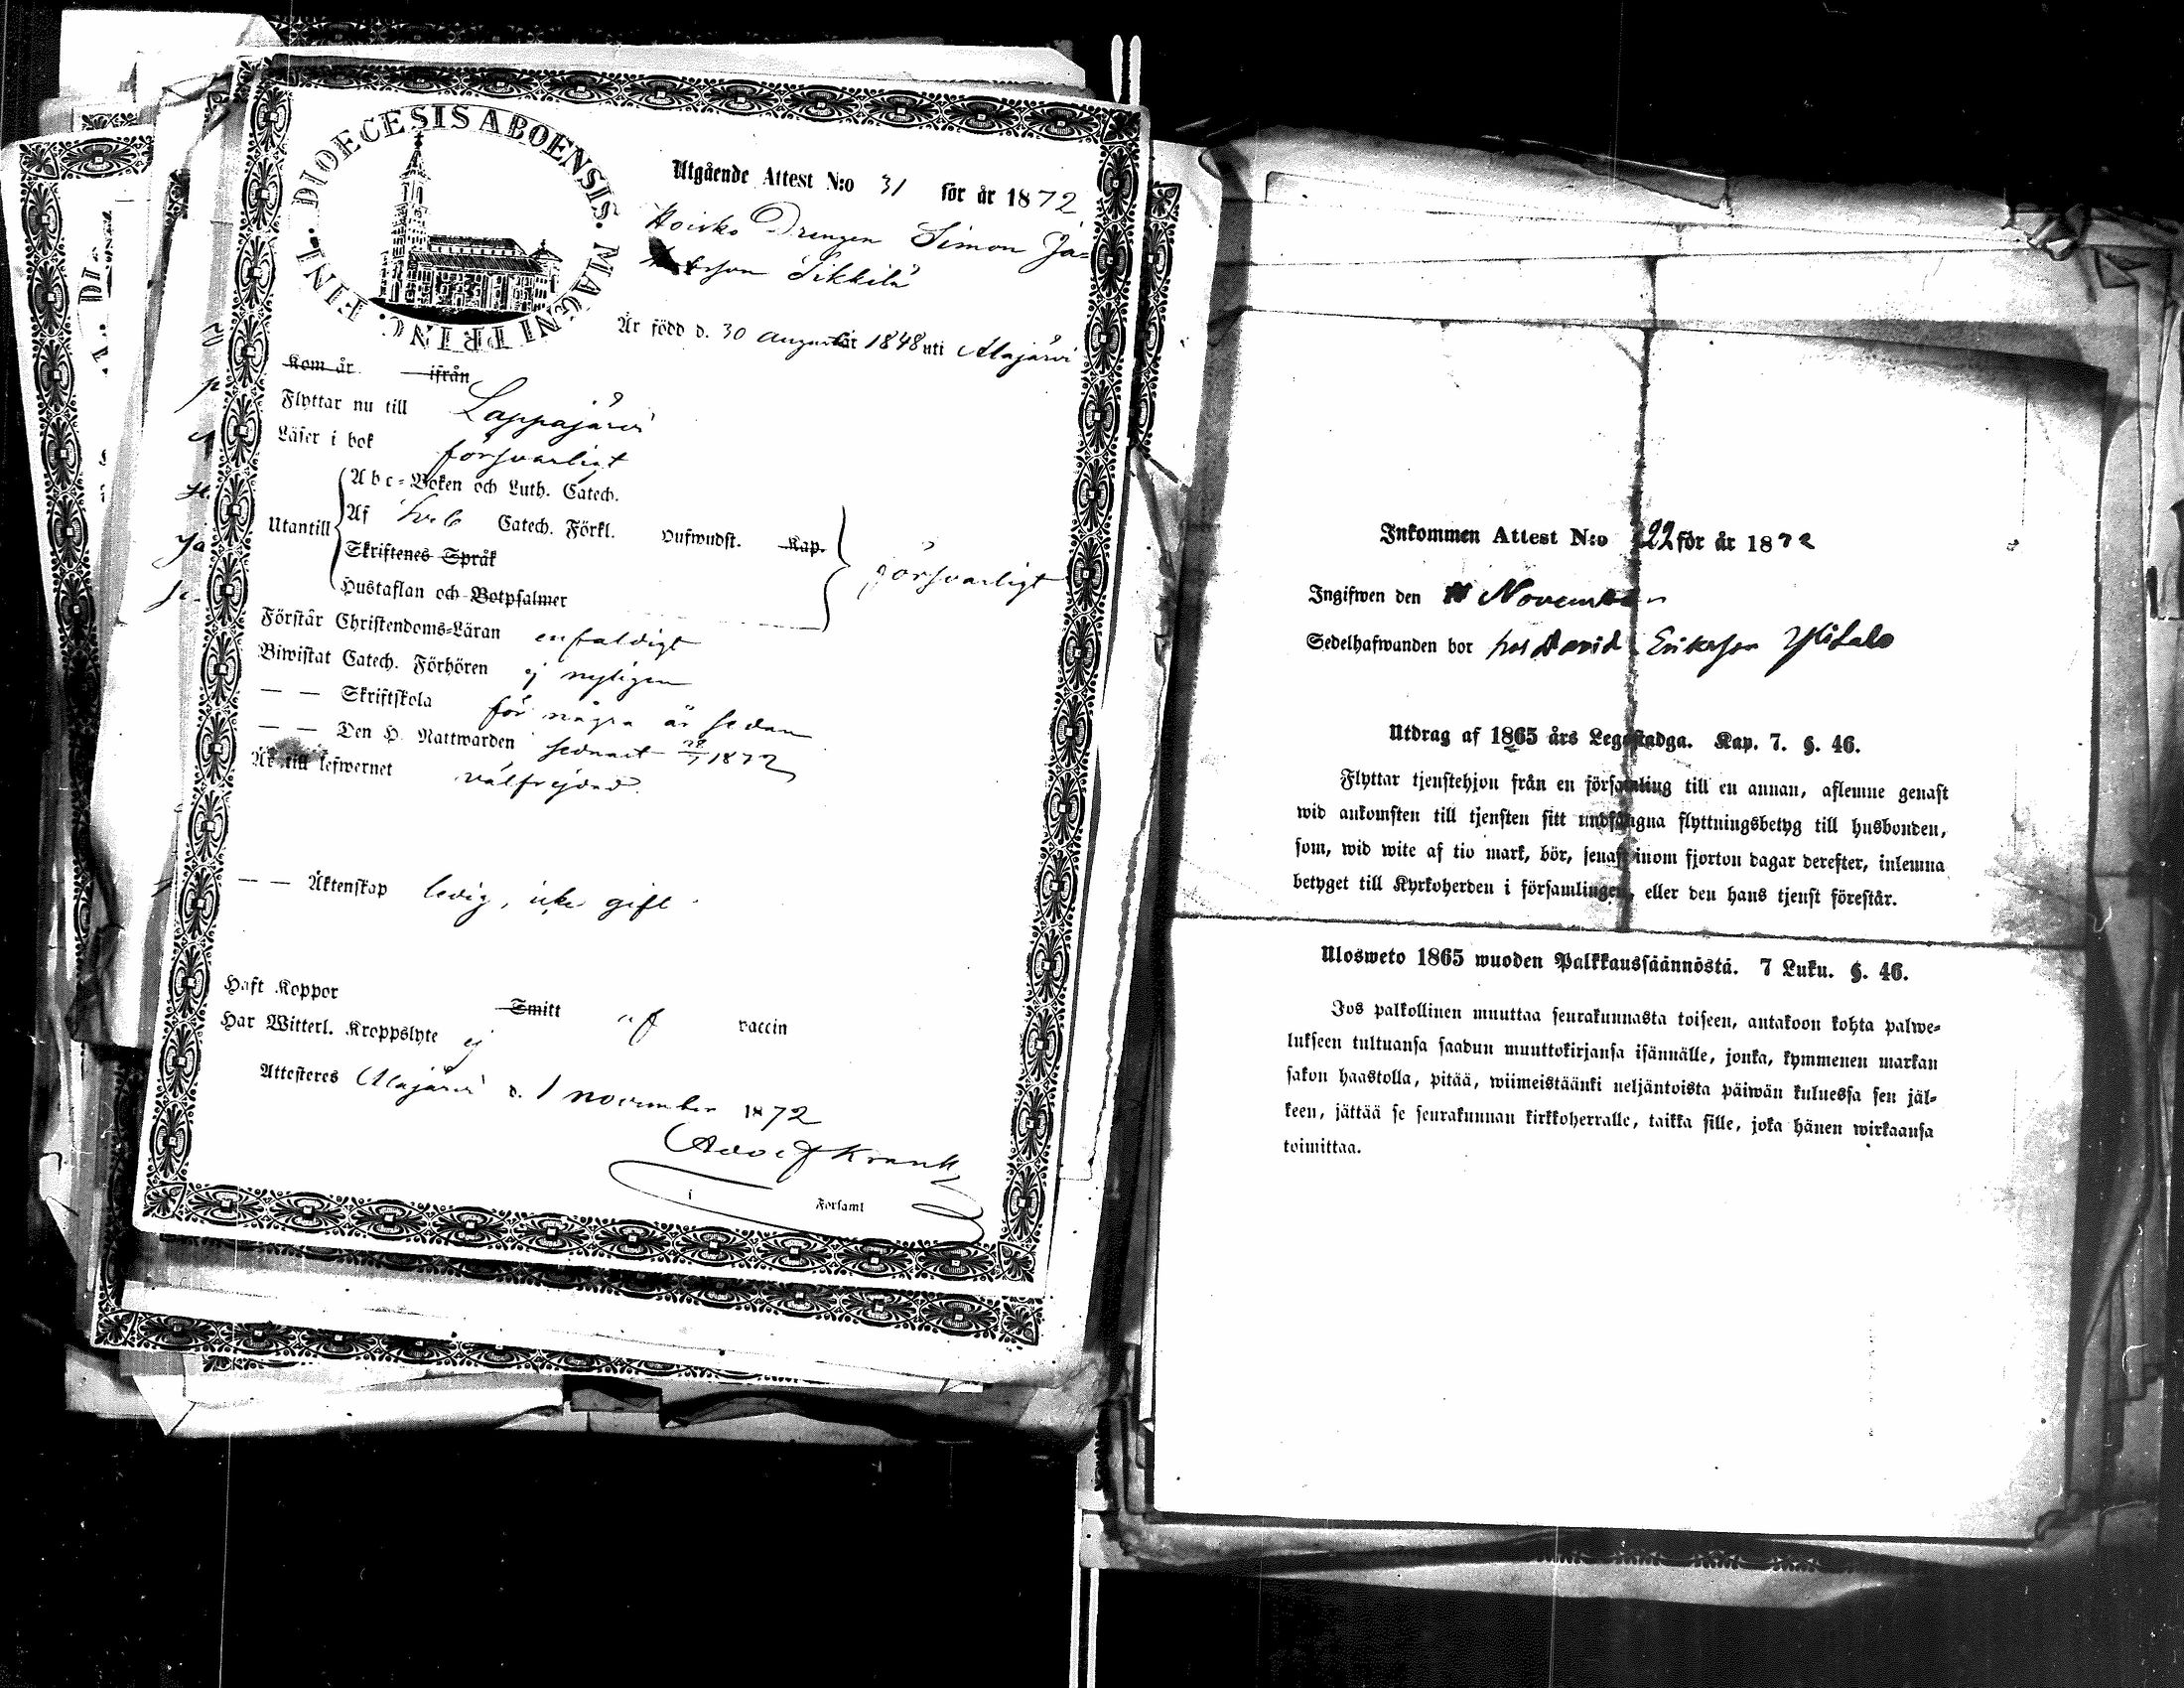 DIOECESIS ABOENSIS. MAGNI PRINC. FINL.
Utgående Attest N:o 31 för år 1872
Hoisko Drengen Simon Ja=
Sikkilä
Är född d. 30 augusti år 1848 uti Alajärvi
Kom år ifrån
Flyttar nu till Lappajärvi
Läser i bok försvarligt
Utantill
Abc=Boken och Luth. Catech.
Af Sveb Catech. Förkl. Hufwudst. Kap.
Skriftenes Språk
Hustaflan och Botpsalmer
försvarligt
Förstår Christendoms=Läran enfaldigt
Biwistat Catech. Förhören ej nyligen
— — Skriftskola för några år sedan
— — Den H. Nattwarden senast 1872
Är till lefwernet välfrejdad.
— — Äktenskap ledig, icke gift
Haft Koppor Smitt af vaccin
Har Witterl. Kroppslyte ej
Attesteres Alajärvi d. 1 november 1872
Adolf Krank
i Församl
Inkommen Attest N:o 22 för år 1872
Ingifwen den November
Sedelhafwanden bor hos David Eriksson Ylitalo
Utdrag af 1865 års Legostadga. Kap. 7. §. 46.
Flyttar tjenstehjon från en församling till en annan, aflemne genast
wid ankomsten till tjensten sitt undfångna flyttningsbetyg till husbonden,
som, wid wite af tio mark, bör, senast inom fjorton dagar derefter, inlemna
betyget till Kyrkoherden i församlingen, eller den hans tjenst förestår.
Ulosweto 1865 wuoden Palkkaussäännöstä. 7 Luku. §. 46.
Jos palkollinen muuttaa seurakunnasta toiseen, antakoon kohta palwe=
lukseen tultuansa saadun muuttokirjansa isännälle, jonka, kymmenen markan
sakon haastolla, pitää, wiimeistäänki neljäntoista päiwän kuluessa sen jäl=
keen, jättää se seurakunnan kirkkoherralle, taikka sille, joka hänen wirkaansa
toimittaa.